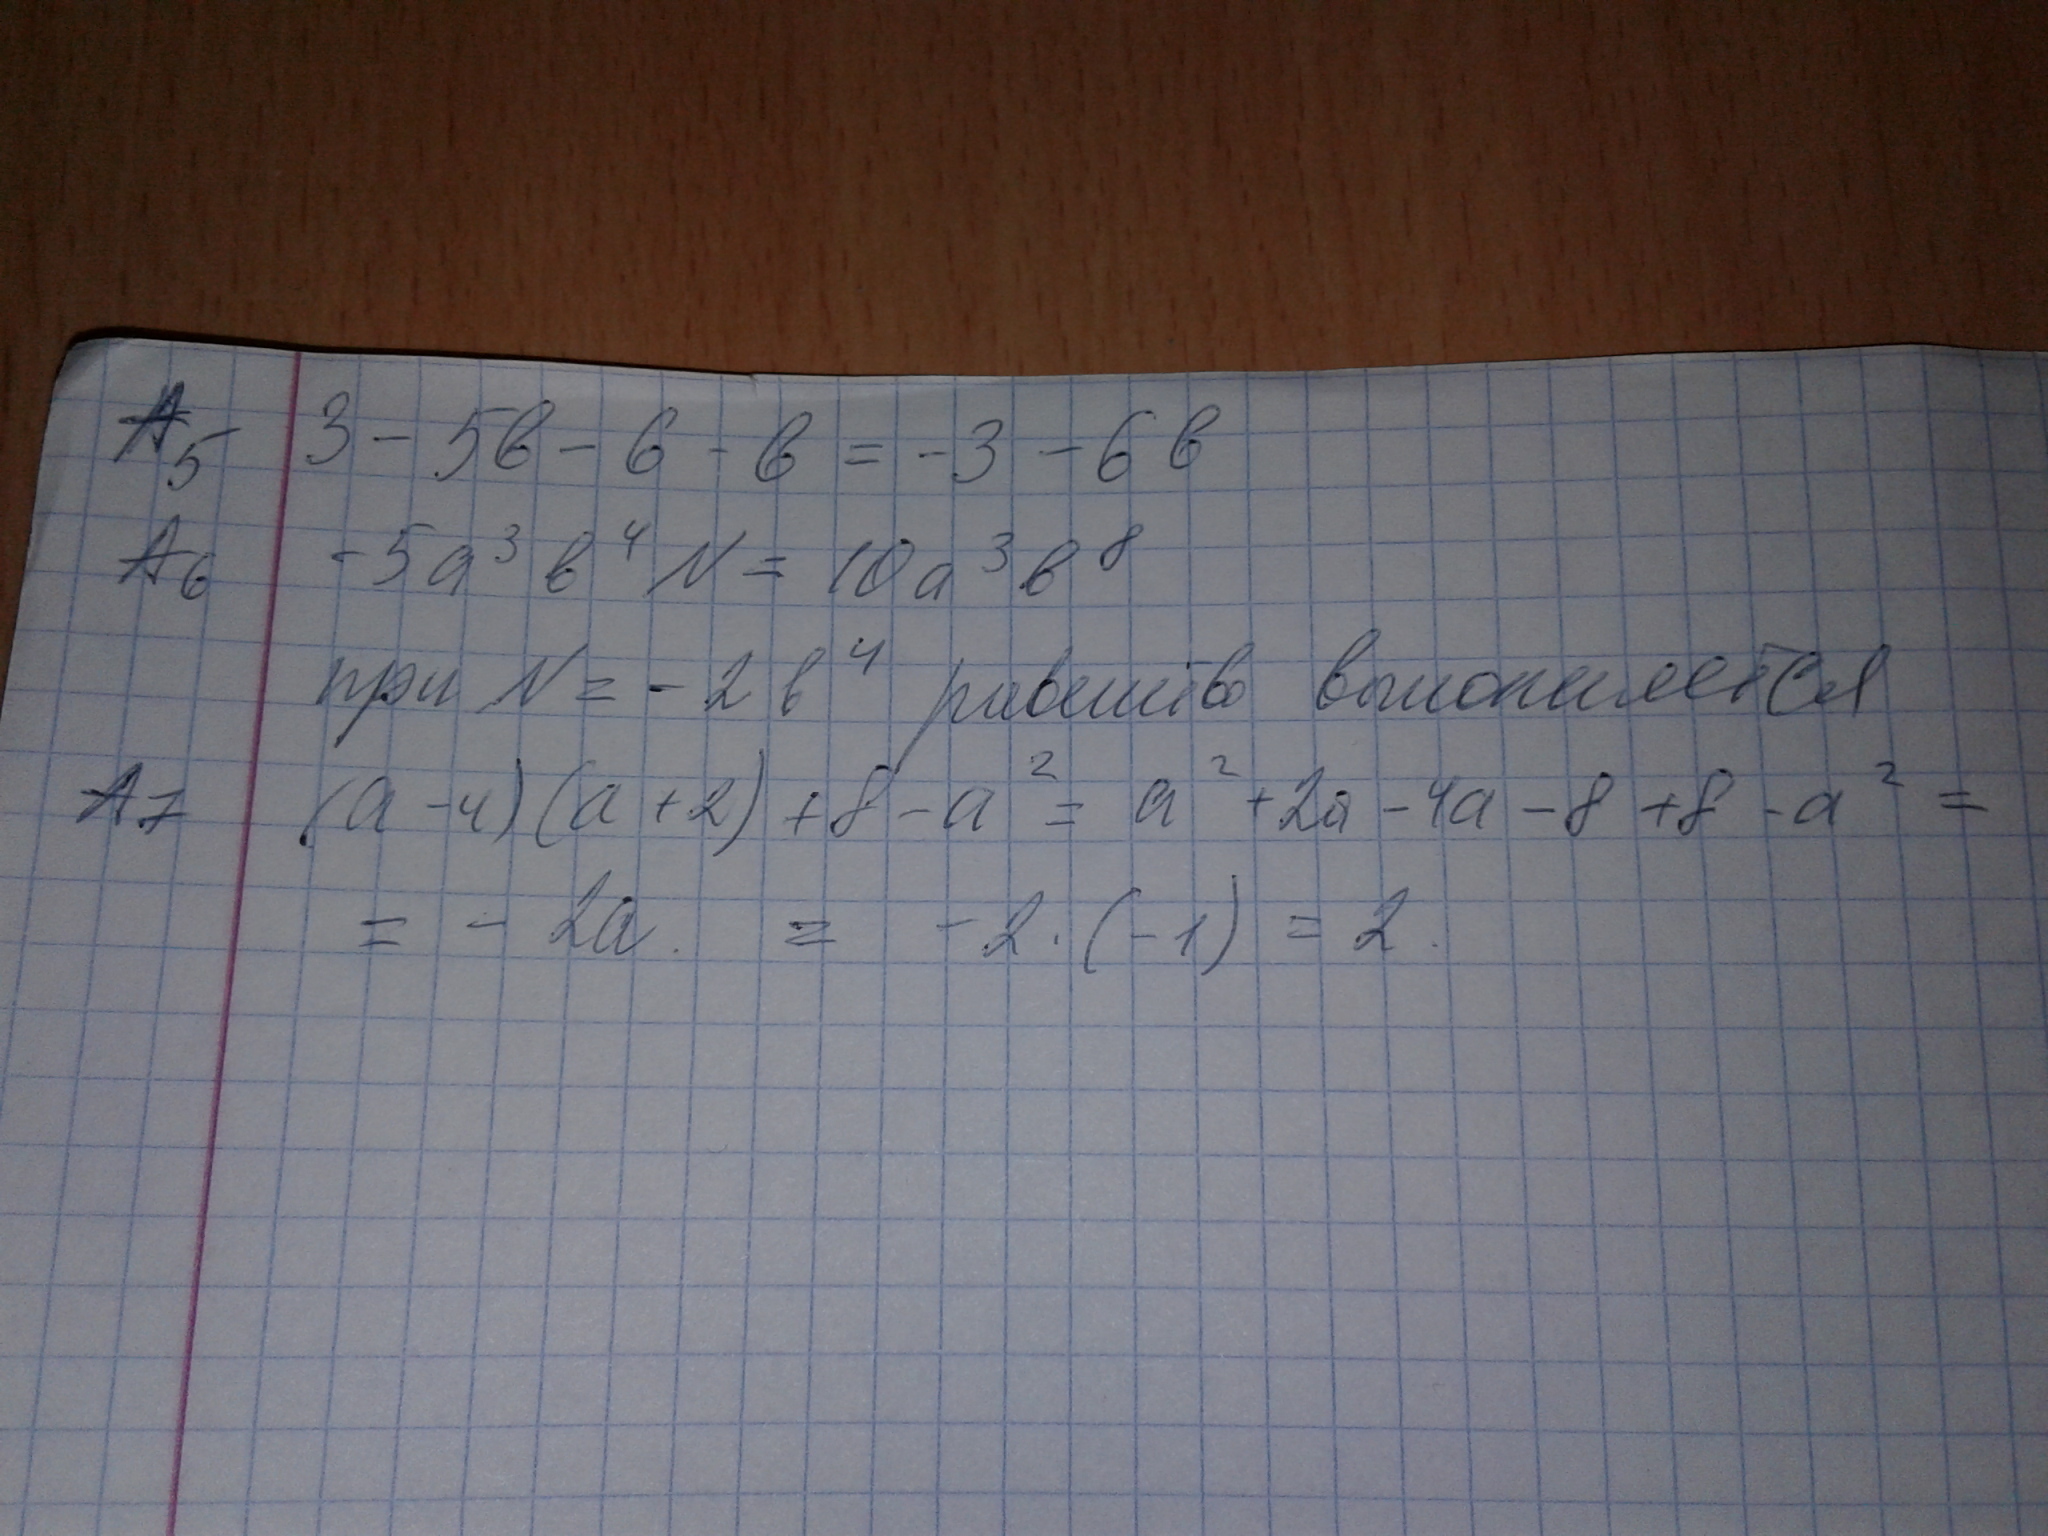 A5 3 - 5в - 6 - в = -3 - 6в
A6 -5a³в⁴N = 10a³в⁸
при N = -2в⁴ равенство выполняется
A7 (a - 4)(a + 2) + 8 - a² = a² + 2a - 4a - 8 + 8 - a² =
= - 2a. = -2·(-1) = 2.